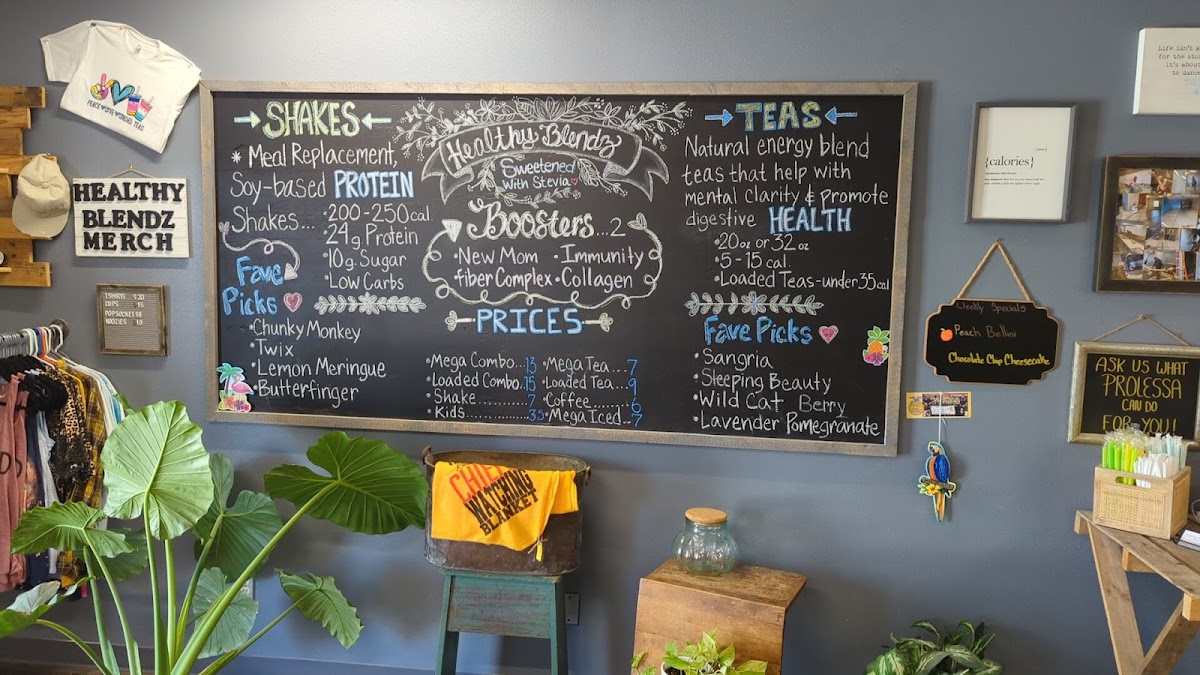 PEACE LOVE LOADED TEAS
HEALTHY
BLENDZ
MERCH
TSHIRTS $20
CUPS $15
POPSOCKETS $8
KOOZIES $10
SHAKES
* Meal Replacement,
Soy-based PROTEIN
Shakes...
•200-250 cal
•24g Protein
•10g Sugar
•Low Carbs
Fave
Picks
•Chunky Monkey
•Twix
•Lemon Meringue
•Butterfinger
Healthy Blendz
Sweetened
with Stevia
Boosters...2
•New Mom •Immunity
fiber Complex •Collagen
PRICES
•Mega Combo...13
•Loaded Combo..15
•Shake.........7
•Kids..........3.5
•Mega Tea....7
•Loaded Tea...9
•Coffee.......6
•Mega Iced...7
TEAS
Natural energy blend
teas that help with
mental clarity & promote
digestive HEALTH
•20oz or 32oz
•5-15 cal
•Loaded Teas-under 35cal
Fave Picks
•Sangria
•Sleeping Beauty
•Wild Cat Berry
•Lavender Pomegranate
CHIEFS
WATCHING
BLANKET
{calories}
Life isn't
for the sto
it's about
to danc
Weekly Specials
Peach Bellini
Chocolate Chip Cheesecake
ASK US WHAT
PROLESSA
CAN DO
FOR YOU!